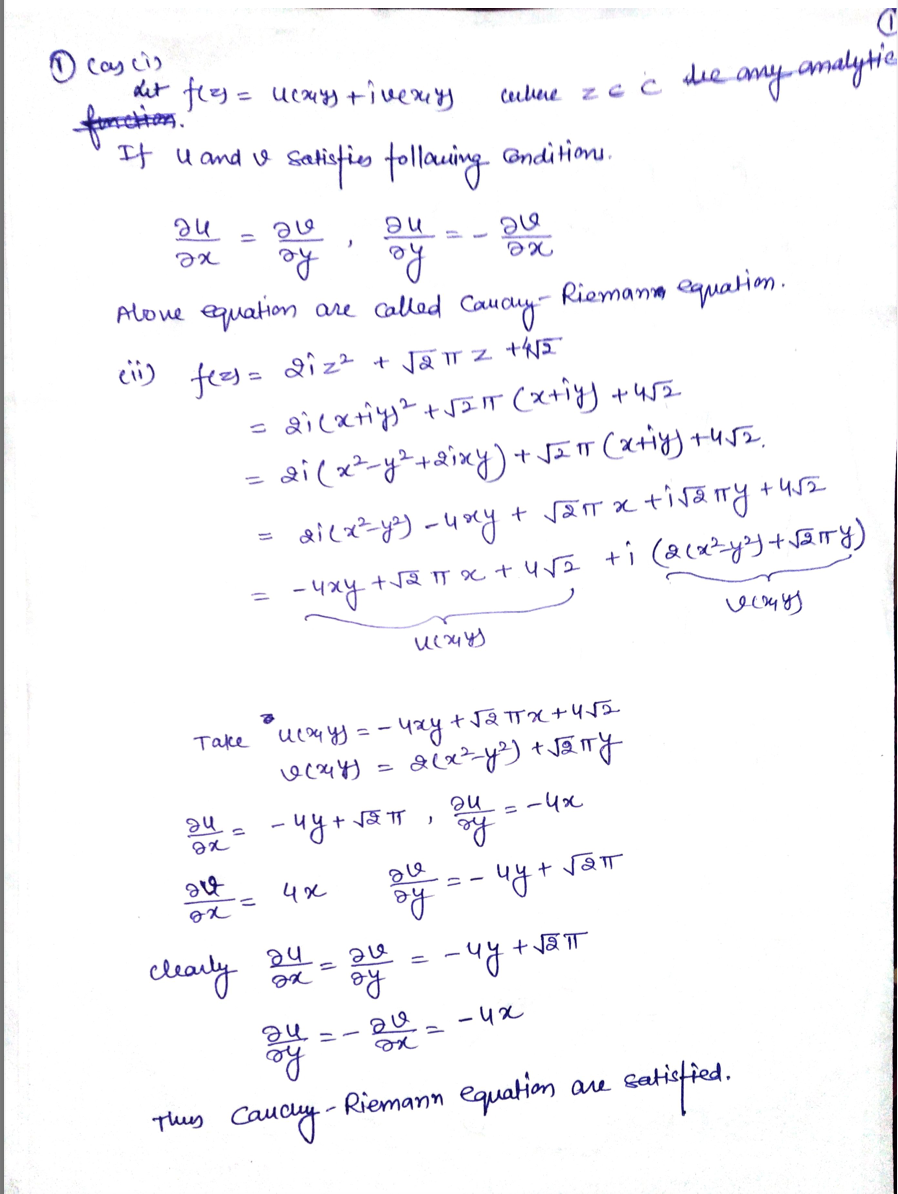 ①
① (a) (i)
Let f(z) = u(x,y) + iv(x,y) where z ∈ ℂ be any analytic
function.
If u and v satisfies following conditions.
∂u/∂x = ∂v/∂y , ∂u/∂y = - ∂v/∂x
Above equation are called Cauchy-Riemann equation.
(ii) f(z) = 2iz² + √2 π z + 4√2
= 2i(x+iy)² + √2 π (x+iy) + 4√2
= 2i(x²-y²+2ixy) + √2 π (x+iy) + 4√2.
= 2i(x²-y²) - 4xy + √2 π x + i√2 πy + 4√2
= -4xy + √2 π x + 4√2 + i (2(x²-y²) + √2 πy)
u(x,y) v(x,y)
Take u(x,y) = -4xy + √2 πx + 4√2
v(x,y) = 2(x²-y²) + √2 πy
∂u/∂x = -4y + √2 π , ∂u/∂y = -4x
∂v/∂x = 4x ∂v/∂y = -4y + √2 π
clearly ∂u/∂x = ∂v/∂y = -4y + √2 π
∂u/∂y = - ∂v/∂x = -4x
Thus Cauchy-Riemann equation are satisfied.